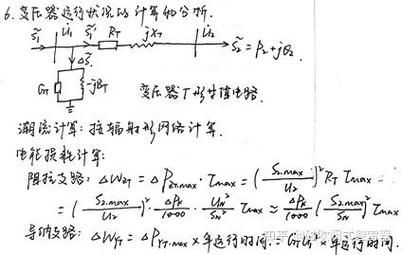 6. 变压器运行状况的计算和分析.
S̃₁ U̇₁ S̃₁' R_T jX_T U̇₂ S̃₂ = P₂+jQ₂
ΔS̃.
G_T -jB_T 变压器Γ形等值电路.
潮流计算: 按辐射形网络计算.
电能损耗计算:
阻抗支路: ΔW_ZT = ΔP_ZT.max · T_max = (S₂.max/U₂)² R_T T_max
= (S₂.max/U₂)² · ΔP_k/1000 · U_N²/S_N² T_max ≈ ΔP_k/1000 (S₂.max/S_N)² T_max
导纳支路: ΔW_YT = ΔP_YT.max × 年运行时间. = G_T U₁² × 年运行时间.